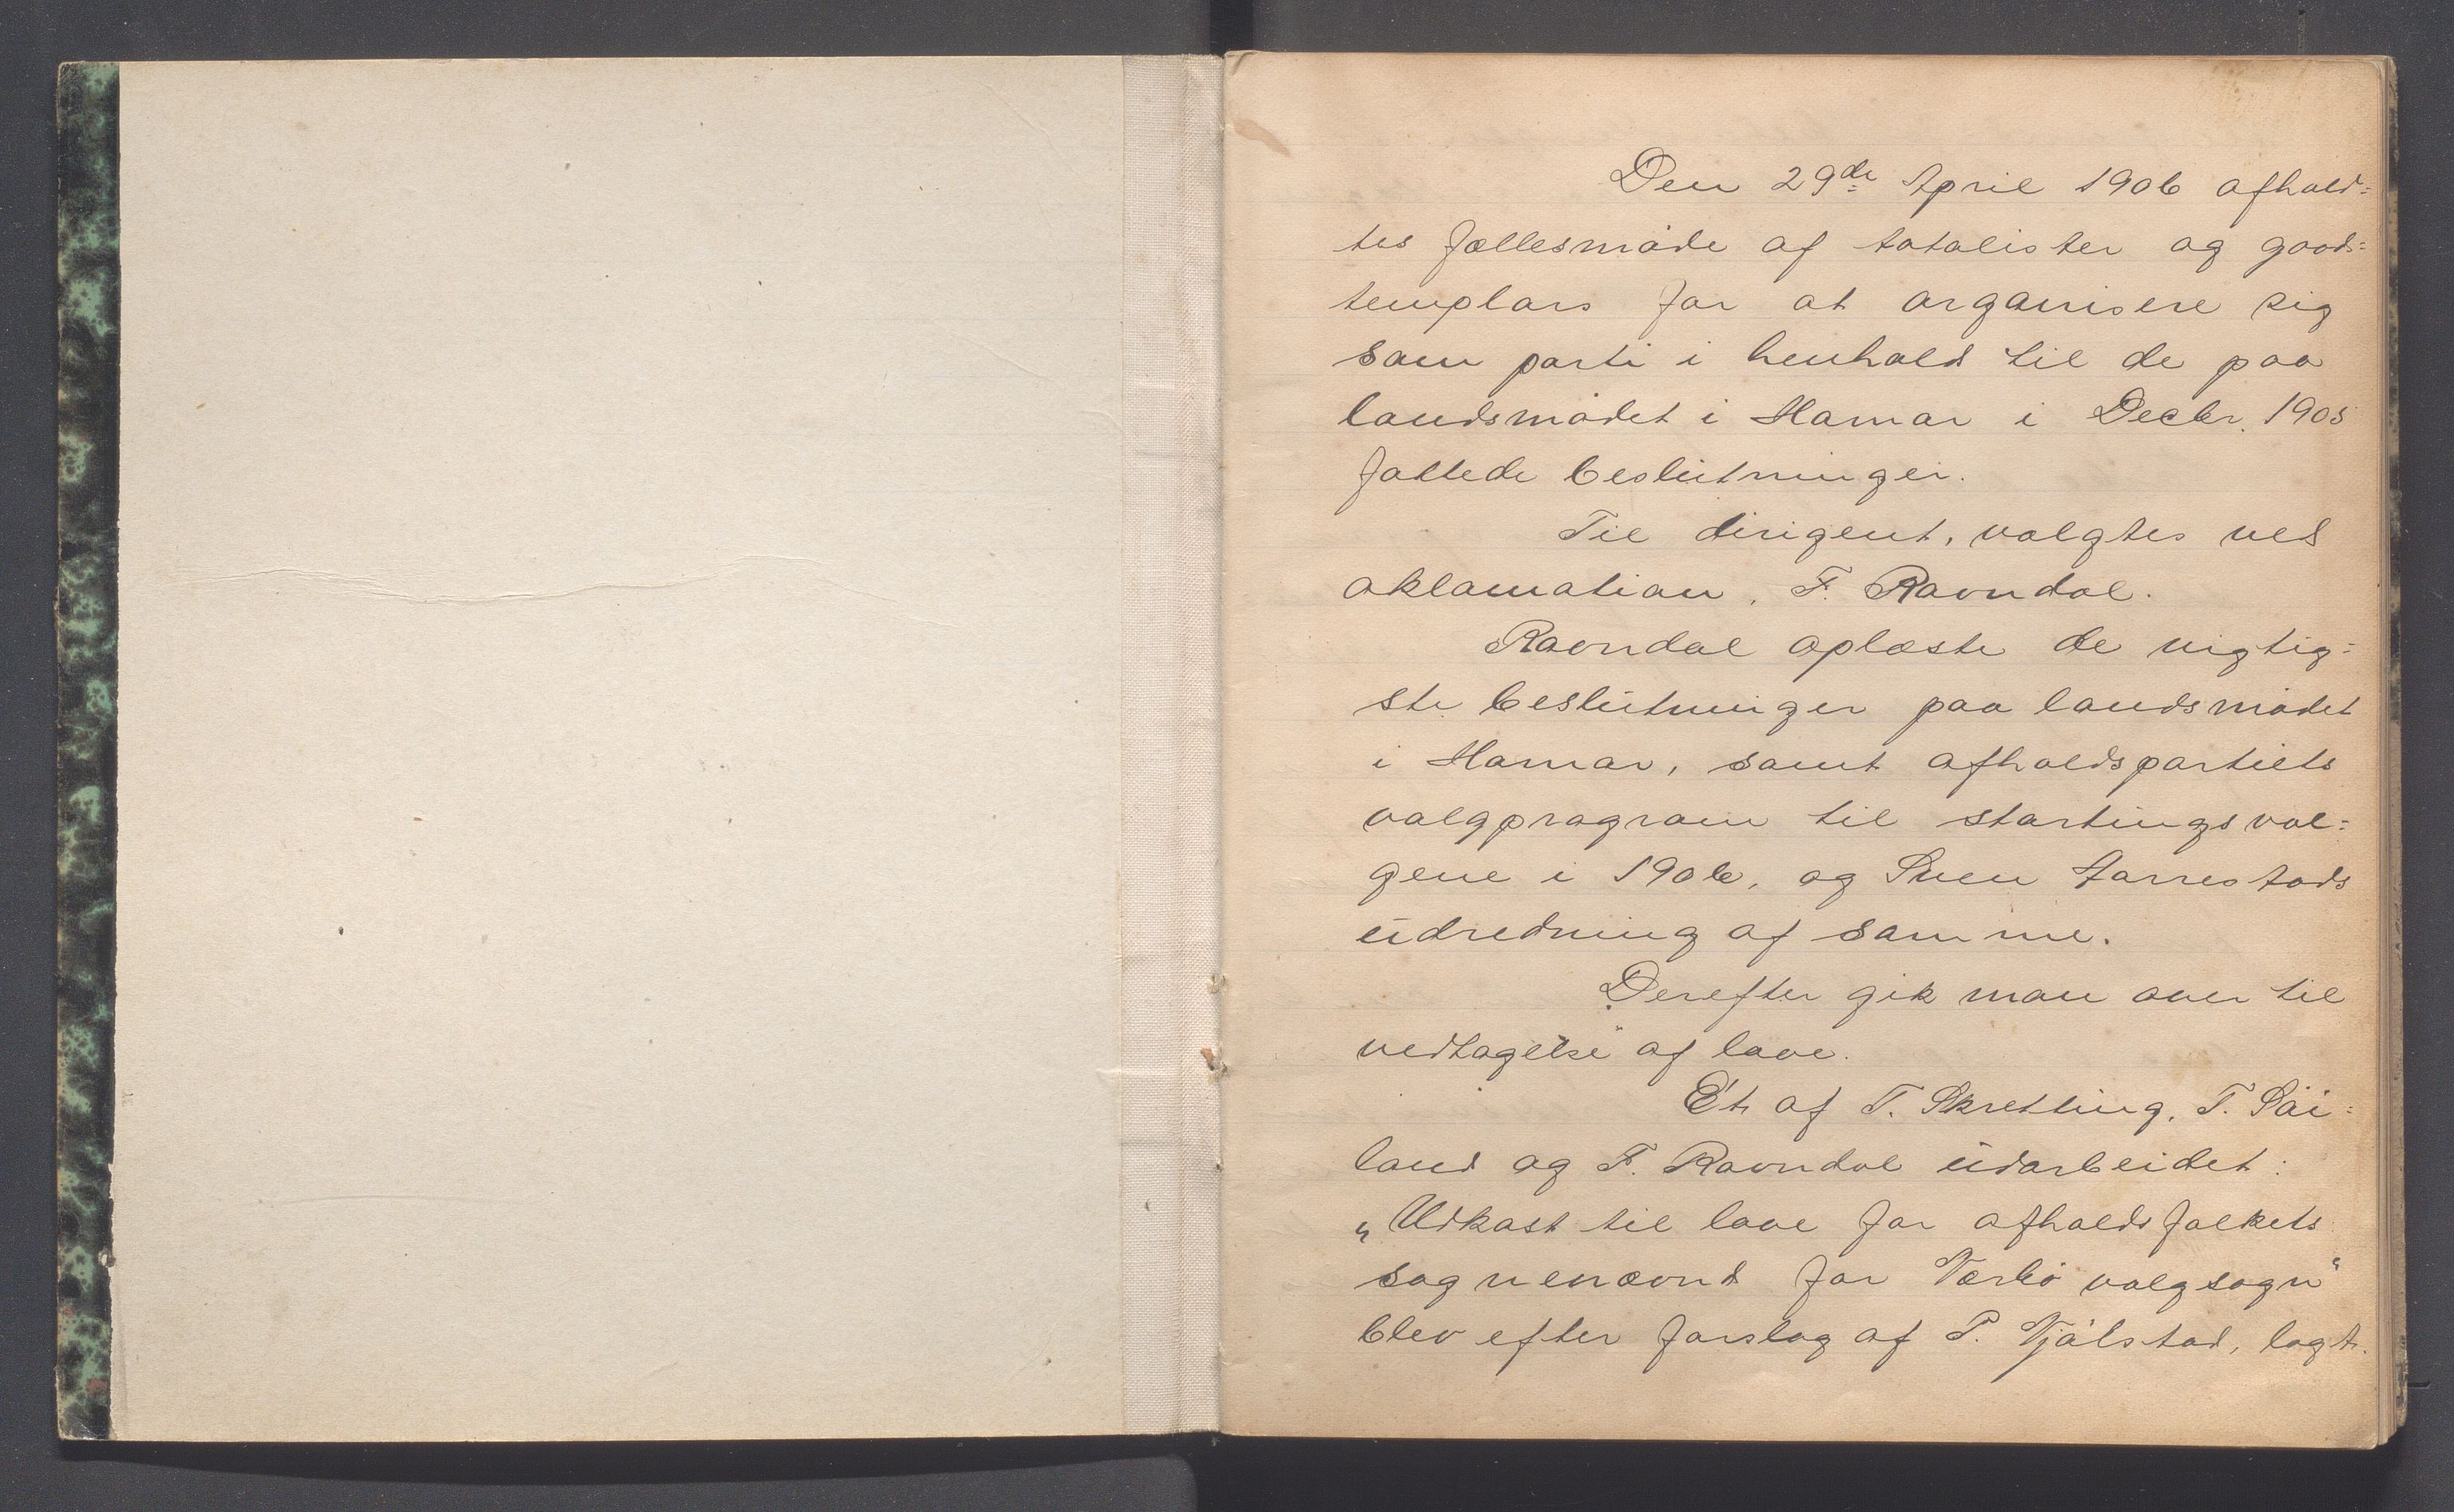 Den 29de April 1906 afhold=
tes fællesmøde af totalister og good=
templars for at organisere sig
som parti i henhold til de paa
landsmødet i Hamar i Decbr. 1905
fattede beslutninger.
Til dirigent, valgtes ved
aklamation, F. Ravndal.
Ravndal oplæste de vigtig=
ste beslutninger paa landsmødet
i Hamar, samt afholdspartiets
valgprogram til stortingsval=
gene i 1906, og Sven Aarrestads
udredning af samme.
Derefter gik man over til
"vedtagelse" af love.
Et af T. Skretting, T. Søi=
land og F. Ravndal udarbeidet:
„Udkast til love for afholdsfolkets
sognenævnd for Varhø valgsogn"
blev efter forslag af P. Tjålstad, lagt